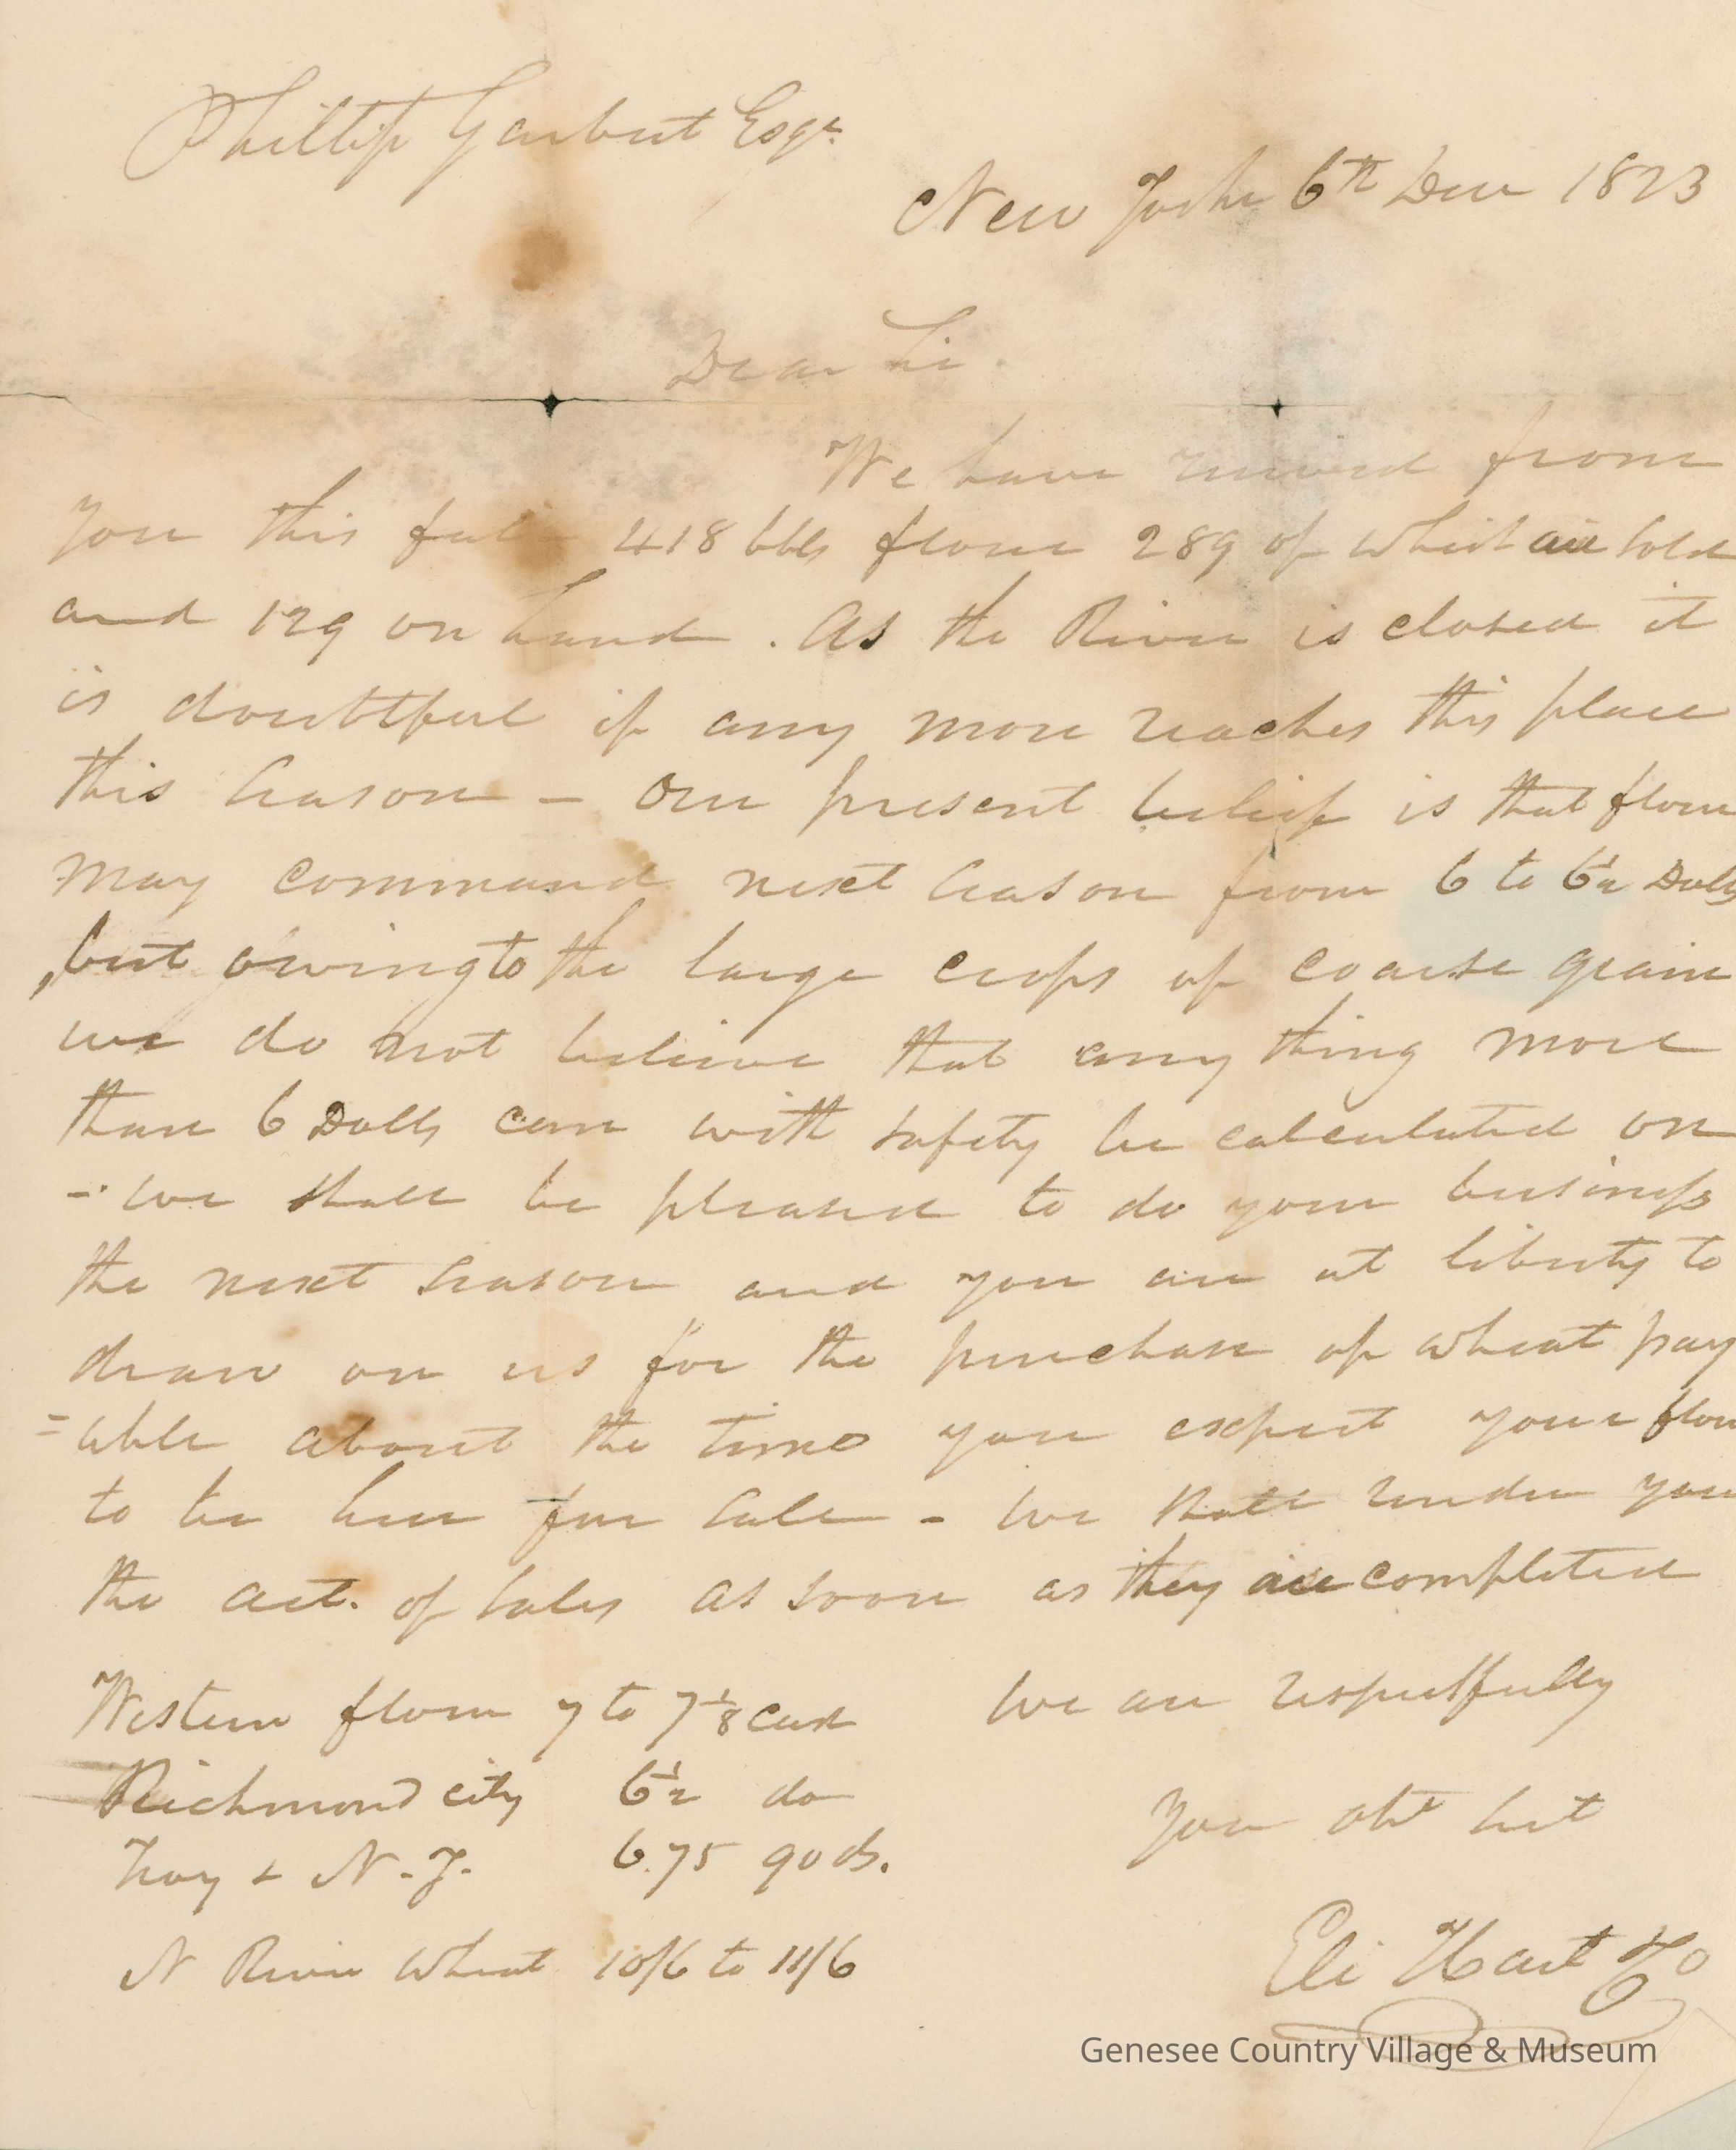 Phillip Garbut Esqr
New York 6th Decr 1823
Dear Sir
We have received from
you this fall 418 bbls flour 289 of which are sold
and 129 on hand. As the River is closed it
is doubtful if any more reaches this place
this season - Our present belief is that flour
may command next season from 6 to 6½ Dolls
, but owing to the large crops of coarse grain
we do not believe that any thing more
than 6 Dolls can with safety be calculated on
- we shall be pleased to do your business
the next season and you are at liberty to
draw on us for the purchase of wheat pay
=able about the time you expect your flour
to be here for sale - We shall render you
the act. of sales as soon as they are completed
Western flour 7 to 7⅛ cash
We are respectfully
Richmond city 6½ do
Your obt sert
Troy & N.Y. 6.75 90 ds.
Eli Hart & Co
N River Wheat 10/6 to 11/6
Genesee Country Village & Museum